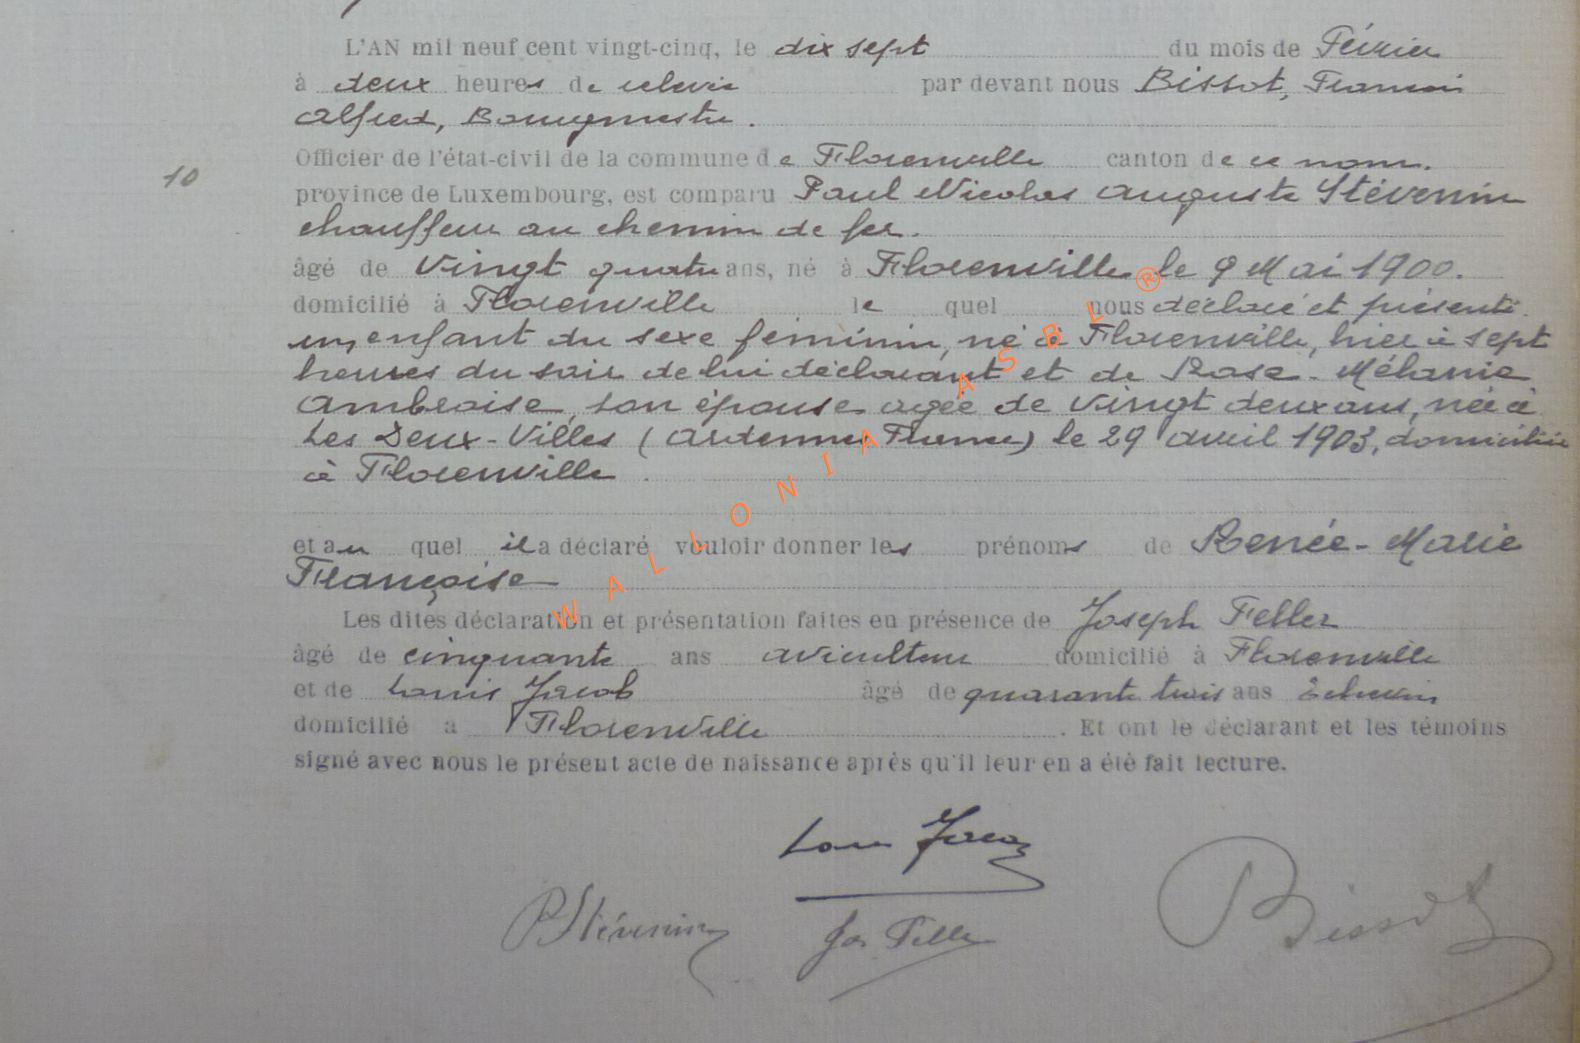 L'AN mil neuf cent vingt-cinq, le dix sept du mois de Février
à deux heures de relevée par devant nous Bissot, Francois
Alfred, Bourgmestre.
Officier de l'état-civil de la commune de Florenville canton de ce nom.
10
province de Luxembourg, est comparu Paul Nicolas Auguste Stévenin
chauffeur au chemin de fer.
âgé de vingt quatre ans, né à Florenville le 9 Mai 1900.
domicilié à Florenville le quel nous déclaré et présenté
un enfant du sexe féminin, né à Florenville, hier à sept
heures du soir de lui déclarant et de Rose-Mélanie
Ambroise, son épouse agée de vingt deux ans, née à
Les Deux-Villes (Ardennes France) le 29 avril 1903, domiciliée
à Florenville.
et au quel il a déclaré vouloir donner les prénoms de Renée-Marie
Françoise
Les dites déclaration et présentation faites en présence de Joseph Feller
âgé de cinquante ans aviculteur domicilié à Florenville
et de Louis Jacob âgé de quarante trois ans Echevin
domicilié a Florenville. Et ont le déclarant et les témoins
signé avec nous le présent acte de naissance après qu'il leur en a été fait lecture.
Louis Jacob
P Stévenin Jos Feller Bissot
WALLONIA ASBL ®